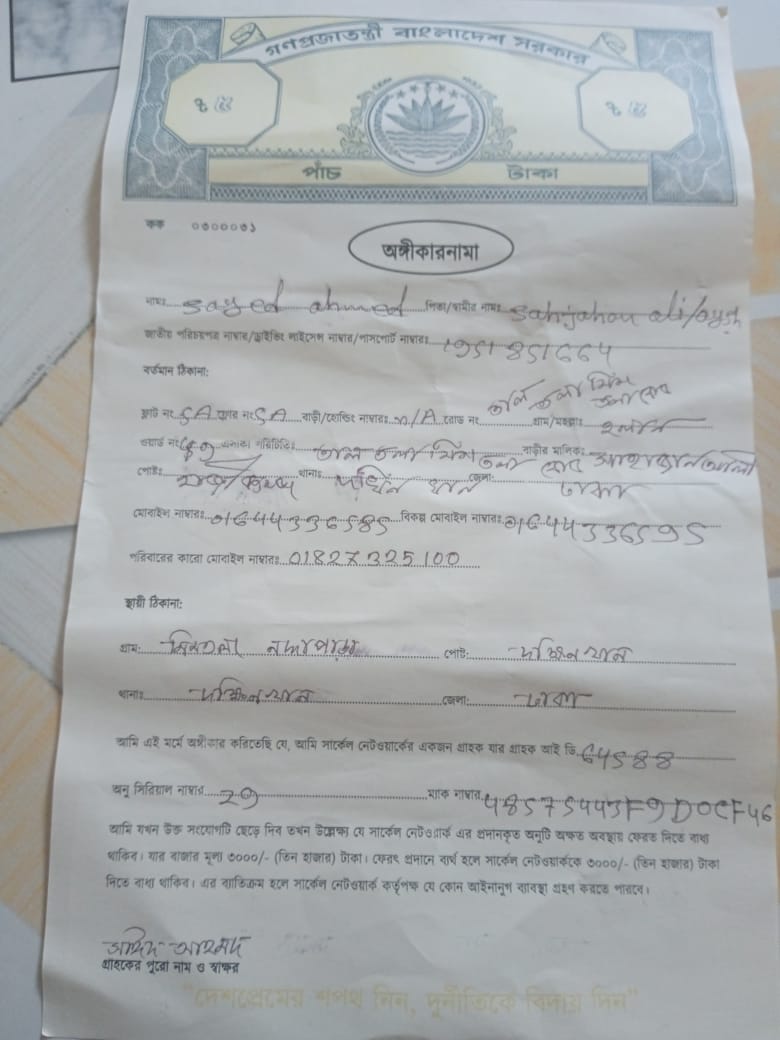 গণপ্রজাতন্ত্রী বাংলাদেশ সরকার
পাঁচ টাকা
কক ০৩০০০৩১
অঙ্গীকারনামা
নামঃ sayed ahmed পিতা/স্বামীর নামঃ sahjahan ali/
জাতীয় পরিচয়পত্র নাম্বার/ড্রাইভিং লাইসেন্স নাম্বার/পাসপোর্ট নাম্বারঃ 1951851664
বর্তমান ঠিকানা:
ফ্লাট নং 5A ফ্লোর নং 5A বাড়ী/হোল্ডিং নাম্বারঃ n/A রোড নং গ্রাম/মহল্লাঃ
ওয়ার্ড নং এলাকা পরিচিতিঃ বাড়ীর মালিকঃ
পোষ্টঃ থানাঃ দক্ষিন খান জেলা: ঢাকা
মোবাইল নাম্বারঃ 01644336585 বিকল্প মোবাইল নাম্বারঃ 01644336595
পরিবারের কারো মোবাইল নাম্বারঃ 01827325100
স্থায়ী ঠিকানা:
গ্রাম: নদ্দাপাড়া পোষ্ট: দক্ষিন খান
থানাঃ দক্ষিন খান জেলা: ঢাকা
আমি এই মর্মে অঙ্গীকার করিতেছি যে, আমি সার্কেল নেটওয়ার্কের একজন গ্রাহক যার গ্রাহক আই ডি. 64588
অনু সিরিয়াল নাম্বার 29 ম্যাক নাম্বার 48575443F9D0CF46
আমি যখন উক্ত সংযোগটি ছেড়ে দিব তখন উল্লেক্ষ্য যে সার্কেল নেটওয়ার্ক এর প্রদানকৃত অনুটি অক্ষত অবস্থায় ফেরত দিতে বাধ্য
থাকিব। যার বাজার মূল্য ৩০০০/- (তিন হাজার) টাকা। ফেরৎ প্রদানে ব্যর্থ হলে সার্কেল নেটওয়ার্ককে ৩০০০/- (তিন হাজার) টাকা
দিতে বাধ্য থাকিব। এর ব্যতিক্রম হলে সার্কেল নেটওয়ার্ক কর্তৃপক্ষ যে কোন আইনানুগ ব্যাবস্থা গ্রহণ করতে পারবে।
আহমদ
গ্রাহকের পুরো নাম ও স্বাক্ষর
"দেশপ্রেমের শপথ নিন, দুর্নীতিকে বিদায় দিন"